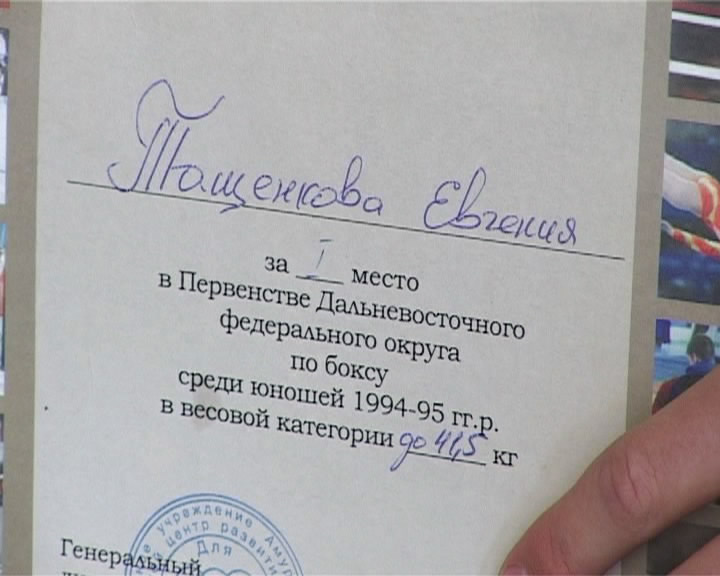 Тащенкова Евгения
за I место
в Первенстве Дальневосточного
федерального округа
по боксу
среди юношей 1994-95 гг.р.
в весовой категории до 41,5 кг
учреждение Амур
центр развити
Для
Генеральный